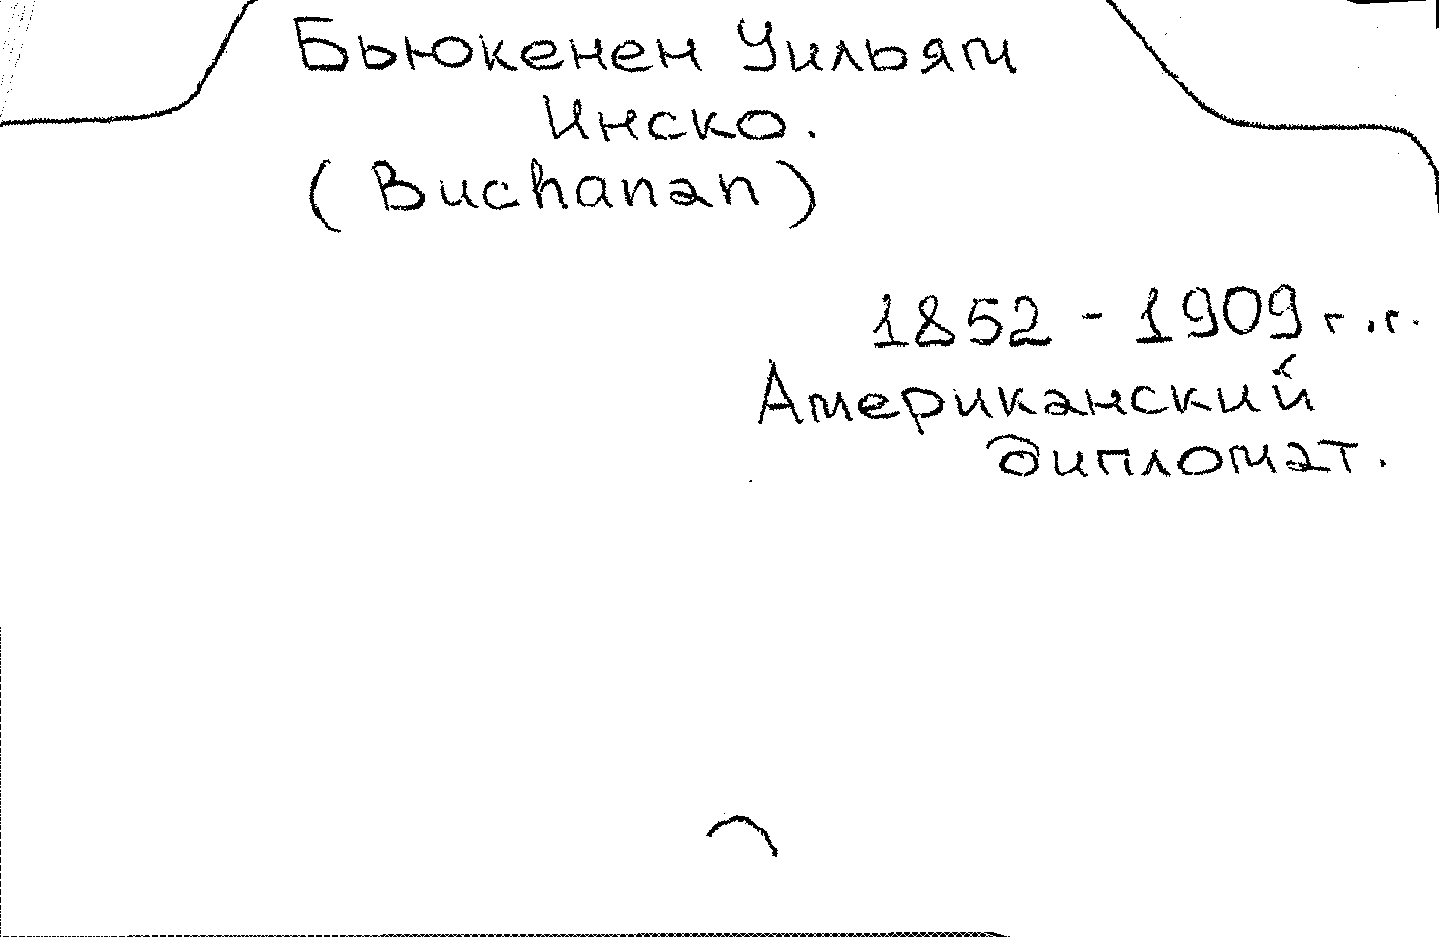 Бьюкенен Уильям
Инско.
(Buchanan)
1852 - 1909 г.г.
Американский
дипломат.